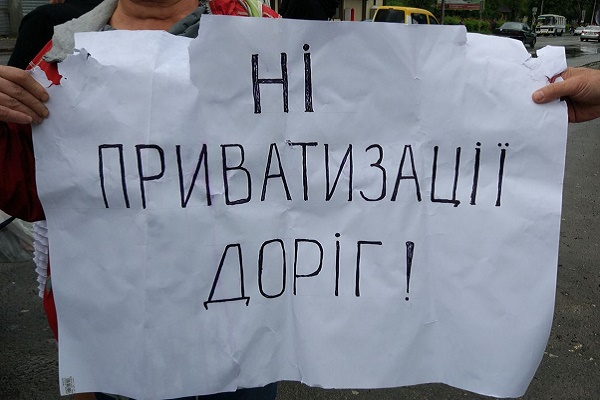 НІ
ПРИВАТИЗАЦІЇ
ДОРІГ!